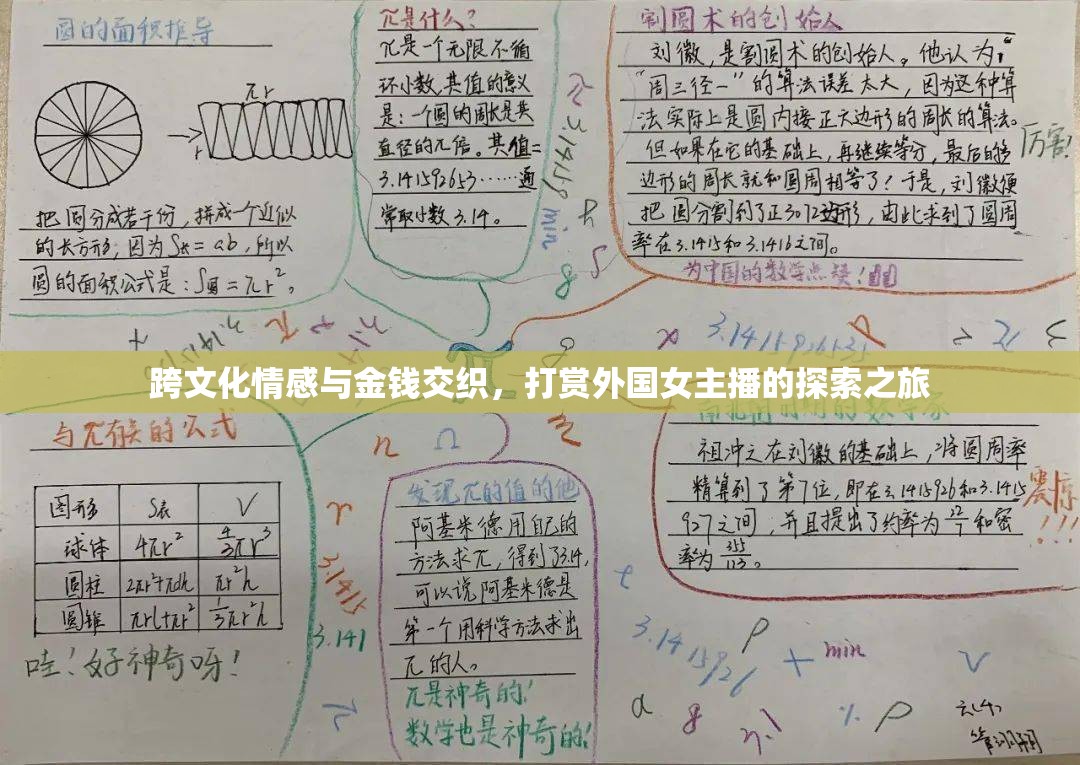 圆的面积推导
πr
r
把圆分成若干份，拼成一个近似
的长方形；因为S长=ab，所以
圆的面积公式是：S圆=πr²。
π是什么？
π是一个无限不循
环小数，其值的意义
是：一个圆的周长是其
直径的π倍。其值=
3.141592653……通
常取小数3.14。
割圆术的创始人
刘徽，是割圆术的创始人。他认为
“周三径一”的算法误差太大，因为这种算
法实际上是圆内接正六边形的周长的算法。
但如果在它的基础上，再继续等分，最后的多
边形的周长就和圆周相等了！于是，刘徽便
把圆分割到了正3072边形，由此求到了圆周
率在3.1415和3.1416之间。
为中国的数学点赞！
厉害！
π 3.14159 min
3.1415926535
跨文化情感与金钱交织，打赏外国女主播的探索之旅
与π有关的公式
图形 S表 V
球体 4πr² 4/3πr³
圆柱 2πr²+πdh πr²h
圆锥 πrl+πr² 1/3πr²h
哇！好神奇呀！
3.1415
3.141
发现π的值的他
阿基米德用自己的
方法求π，得到了3.14，
可以说阿基米德是
第一个用科学方法求出
π的人。
π是神奇的！
数学也是神奇的！
祖冲之在刘徽的基础上，将圆周率
精算到了第7位，即在3.1415926和3.1415
927之间，并且提出了约率为22/7和密
率为355/113。
震惊！！！
3.1415926
ρ
+
min
V
a
8
%
ρ